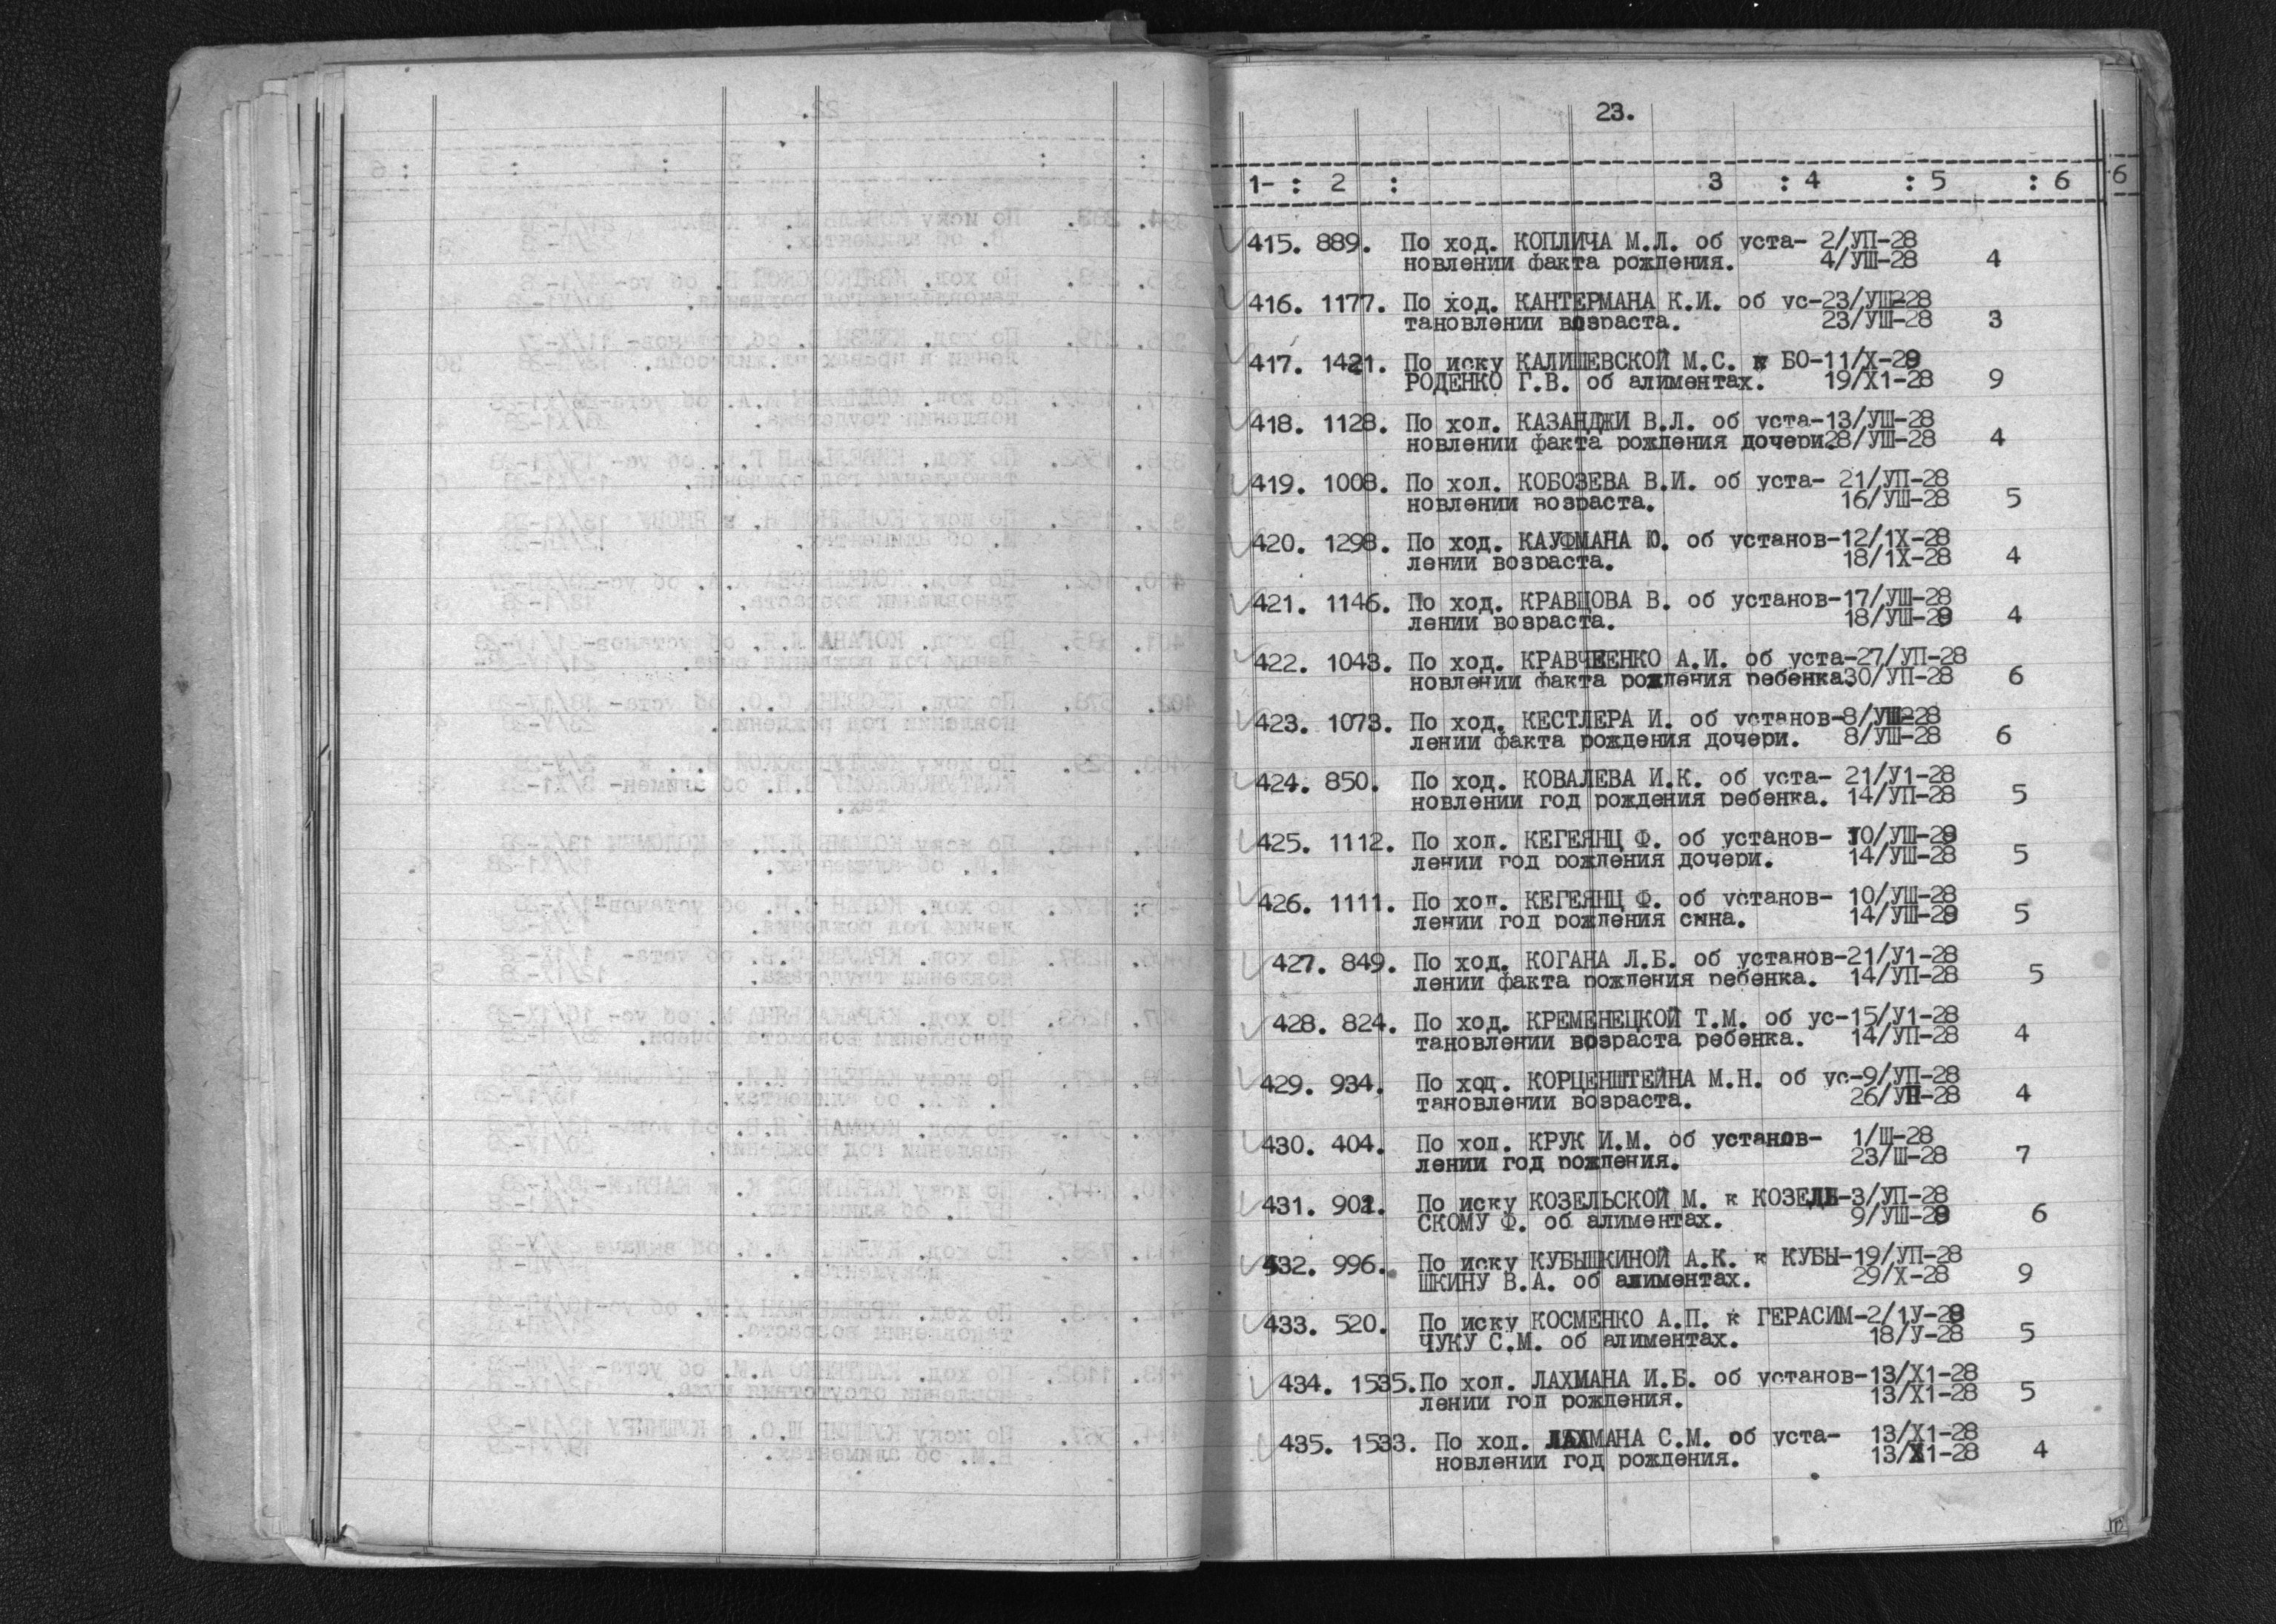 23.
1- : 2 : 3 : 4 : 5 : 6
6
415. 889. По ход. КОПЛИЧА М.Л. об уста- 2/УП-28
новлении факта рождения. 4/УШ-28 4
416. 1177. По ход. КАНТЕРМАНА К.И. об ус-23/УШ-28
тановлении возраста. 23/УШ-28 3
417. 1421. По иску КАЛИШЕВСКОЙ М.С. к БО-11/Х-28
РОДЕНКО Г.В. об алиментах. 19/Х1-28 9
418. 1128. По ход. КАЗАНДЖИ В.Л. об уста-13/УШ-28
новлении факта рождения дочери.28/УШ-28 4
419. 1008. По ход. КОБОЗЕВА В.И. об уста- 21/УП-28
новлении возраста. 16/УШ-28 5
420. 1298. По ход. КАУФМАНА Ю. об установ-12/1Х-28
лении возраста. 18/1Х-28 4
421. 1146. По ход. КРАВЦОВА В. об установ-17/УШ-28
лении возраста. 18/УШ-28 4
422. 1043. По ход. КРАВЧЕЕНКО А.И. об уста-27/УП-28
новлении факта рождения ребенка.30/УП-28 6
423. 1073. По ход. КЕСТЛЕРА И. об установ-8/УШ-28
лении факта рождения дочери. 8/УШ-28 6
424. 850. По ход. КОВАЛЕВА И.К. об уста- 21/У1-28
новлении год рождения ребенка. 14/УП-28 5
425. 1112. По ход. КЕГЕЯНЦ Ф. об установ- 10/УШ-28
лении год рождения дочери. 14/УШ-28 5
426. 1111. По ход. КЕГЕЯНЦ Ф. об установ- 10/УШ-28
лении год рождения сына. 14/УШ-28 5
427. 849. По ход. КОГАНА Л.Б. об установ-21/У1-28
лении факта рождения ребенка. 14/УП-28 5
428. 824. По ход. КРЕМЕНЕЦКОЙ Т.М. об ус-15/У1-28
тановлении возраста ребенка. 14/УП-28 4
429. 934. По ход. КОРЦЕНШТЕЙНА М.Н. об ус-9/УП-28
тановлении возраста. 26/УП-28 4
430. 404. По ход. КРУК И.М. об установ- 1/Ш-28
лении год рождения. 23/Ш-28 7
431. 902. По иску КОЗЕЛЬСКОЙ М. к КОЗЕЛЬ-3/УП-28
СКОМУ Ф. об алиментах. 9/УШ-28 6
432. 996. По иску КУБЫШКИНОЙ А.К. к КУБЫ-19/УП-28
ШКИНУ В.А. об алиментах. 29/Х-28 9
433. 520. По иску КОСМЕНКО А.П. к ГЕРАСИМ-2/1У-28
ЧУКУ С.М. об алиментах. 18/У-28 5
434. 1535. По ход. ЛАХМАНА И.Б. об установ-13/Х1-28
лении год рождения. 13/Х1-28 5
435. 1533. По ход. ЛАХМАНА С.М. об уста- 13/Х1-28
новлении год рождения. 13/Х1-28 4